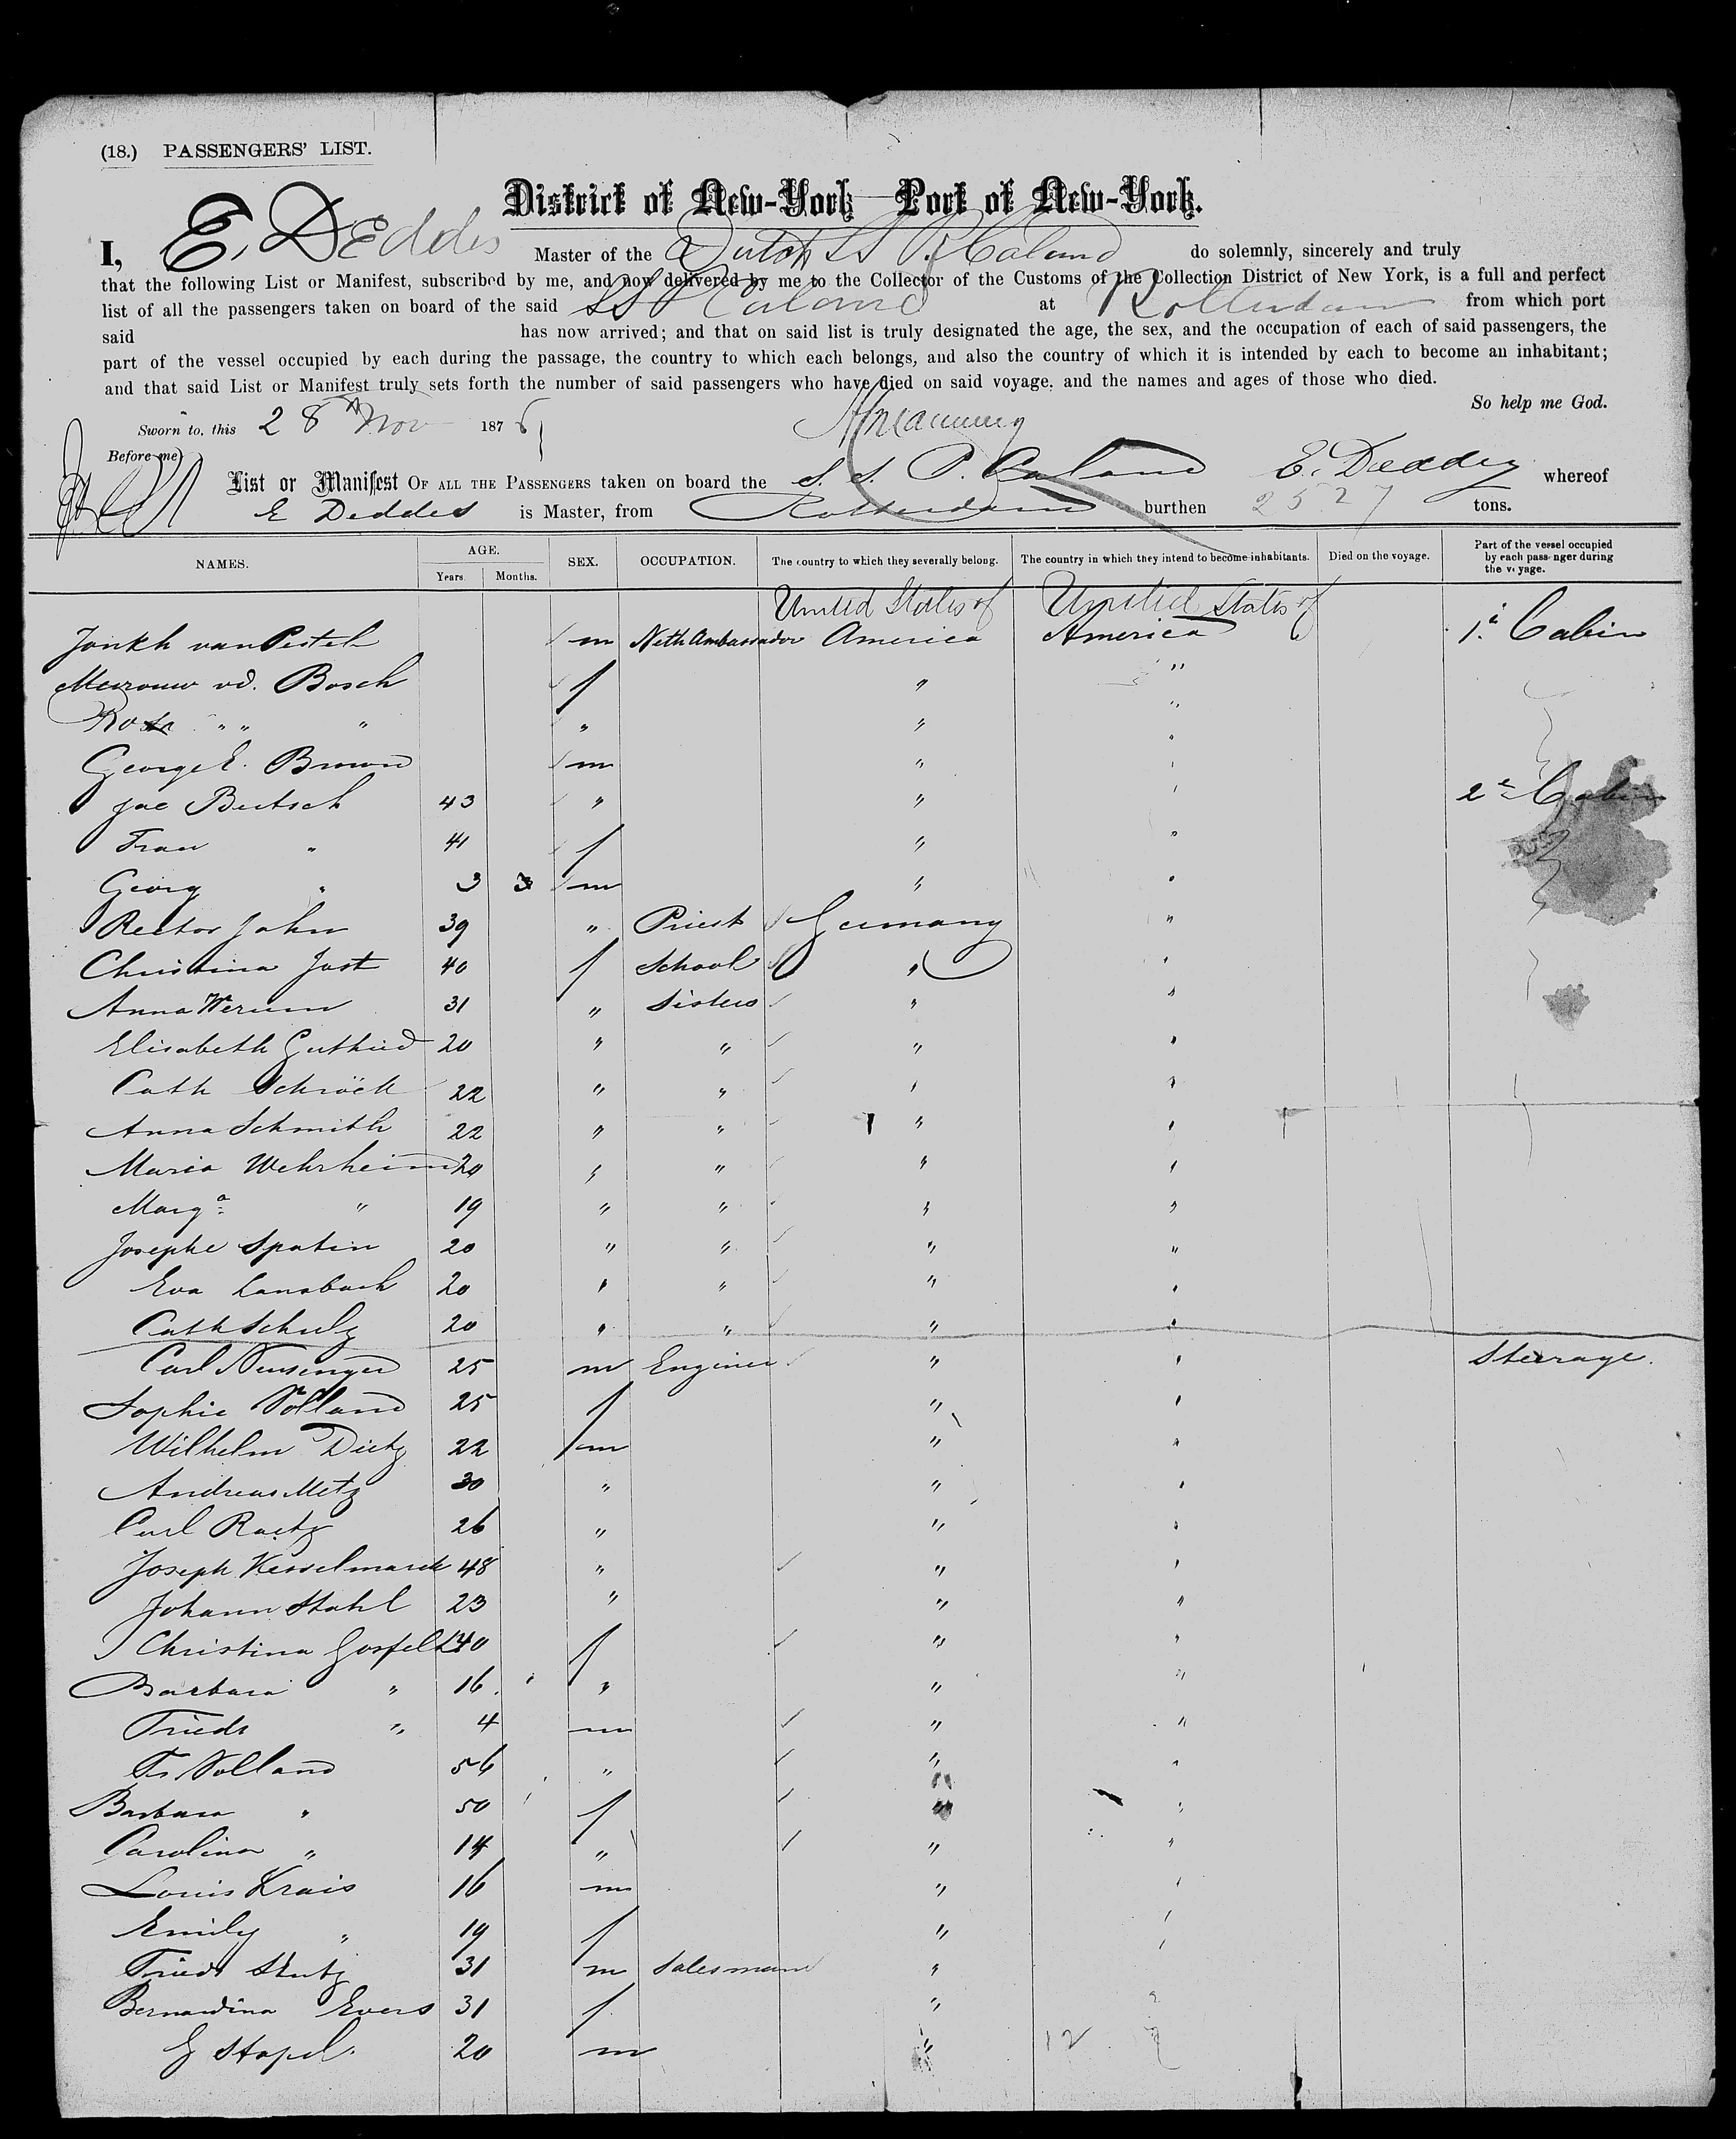 (18.) PASSENGERS' LIST.
District of New-York Port of New-York.
I, E. Deddes Master of the Dutch SS P. Caland do solemnly, sincerely and truly
that the following List or Manifest, subscribed by me, and now delivered by me to the Collector of the Customs of the Collection District of New York, is a full and perfect
list of all the passengers taken on board of the said SS P Caland at Rotterdam from which port
said has now arrived; and that on said list is truly designated the age, the sex, and the occupation of each of said passengers, the
part of the vessel occupied by each during the passage, the country to which each belongs, and also the country of which it is intended by each to become an inhabitant;
and that said List or Manifest truly sets forth the number of said passengers who have died on said voyage, and the names and ages of those who died.
So help me God.
Sworn to, this 28 Nov 1876
Before me
List or Manifest OF ALL THE PASSENGERS taken on board the S. S. P. Caland E. Deddes whereof
E Deddes is Master, from Rotterdam burthen 2527 tons.
NAMES. AGE. Years. Months. SEX. OCCUPATION. The country to which they severally belong. The country in which they intend to become inhabitants. Died on the voyage. Part of the vessel occupied by each passenger during the voyage.
United States of United States of
Jonkh van Pestel m Neth Ambassador America America 1e Cabin
Mevrouw vd. Bosch f " "
" " " " " "
George E. Brown m " "
Jac Bertsch 43 " " " 2e Cabin
Frau " 41 f " "
Georg " 3 3 m " "
Rector John 39 " Priest Germany "
Christina Jost 40 f School " "
Anna Werum 31 " Sisters " "
Elisabeth Guthied 20 " " " "
Cath Schröck 22 " " " "
Anna Schmith 22 " " " "
Maria Wehrheim 20 " " " "
Marga " 19 " " " "
Josephe Spatin 20 " " " "
Eva Lansbach 20 " " " "
Cath Schulz 20 " " " "
Carl Neusinger 25 m Engineer " " Steerage.
Sophie Volland 25 f " "
Wilhelm Dietz 22 m " "
Andreas Metz 30 " " "
Carl Raetz 26 " " "
Joseph Kesselmarck 48 " " "
Johann Stahl 23 " " "
Christina Gosfeld 40 f " "
Barbara " 16 " " "
Friedr " 4 m " "
Fr Volland 56 " " "
Barbara " 50 f " "
Carolina " 14 " " "
Louis Krais 16 m " "
Emily " 19 f " "
Friedr Stutz 31 m Salesmann "
Bernardina Evers 31 f "
G Stapel. 20 m " 12